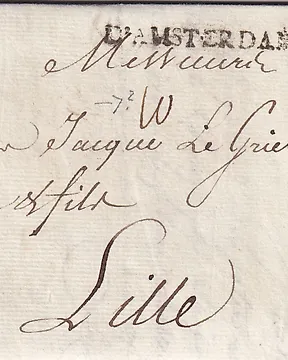 D'AMSTERDAM
Messieurs
→? W
Jacque Le Grie
& fils
Lille